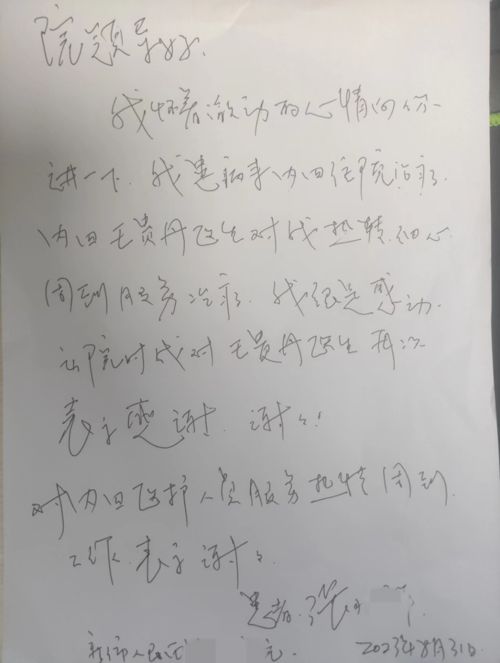 院领导好.
我怀着激动的心情向你
讲一下.我患病来内四住院治疗.
内四王贵丹医生对我热情.细心
周到服务治疗.我很是感动.
出院时我对王贵丹医生再次
表示感谢.谢谢!
对内四医护人员服务热情周到
工作.表示谢谢.
患者.张
人民
2023年8月31日